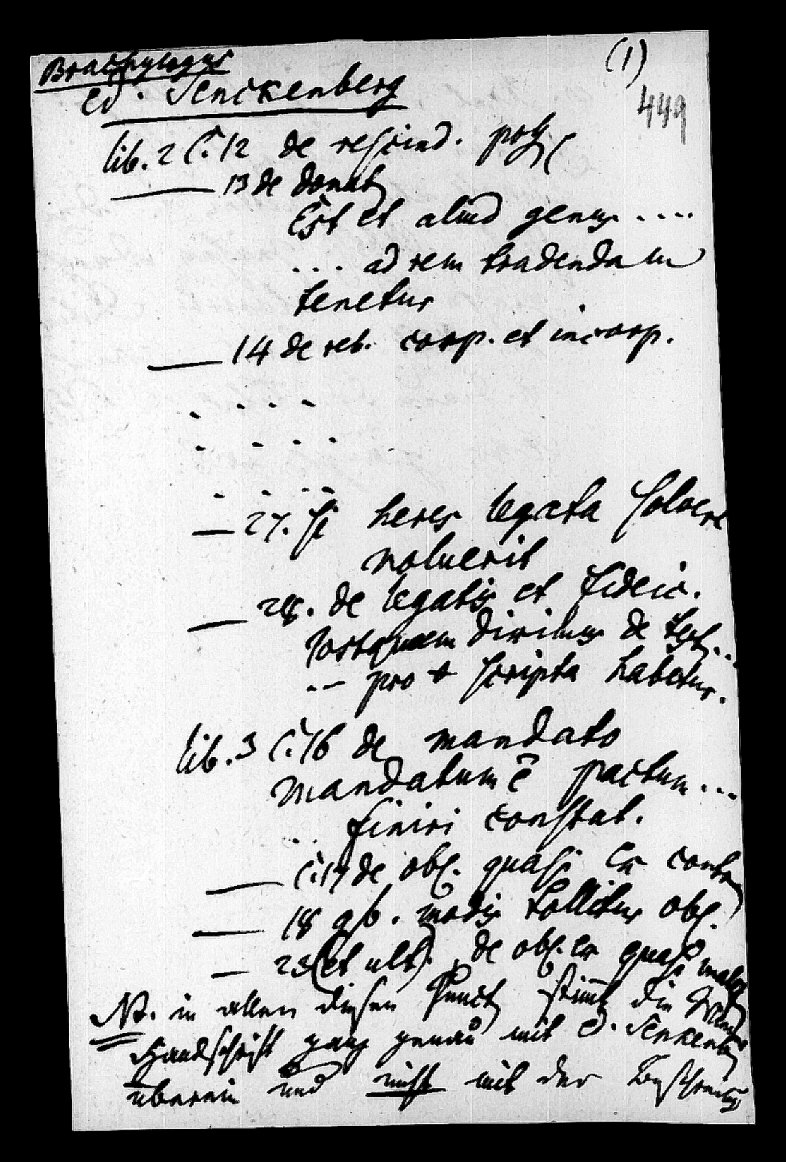 Brachylogus
(1)
ed. Senckenberg
449
lib. 2 C. 12 de rescind.
—— 13 de donat
Est et aliud genus ....
... ad rem tradendam
tenetur
—— 14 de reb. corp. et incorp.
. . . .
. . . .
. . . .
— 27. si heres legata solvere
noluerit
— 28. de legatis et fideic.
Postquam diximus de test...
-- pro + scripta habetur.
lib. 3 C. 16 de mandato
mandatum ē pactum ...
.. finiri constat.
—— C. 17 de obl. quasi ex contr
—— 18 qb. modis tollitur obl.
— 23 (et ult). de obl. ex quasi malef
NB. in allen diesen Punct stimmt die
Handschrift ganz genau mit ed. Senckenberg
überein und nicht mit der